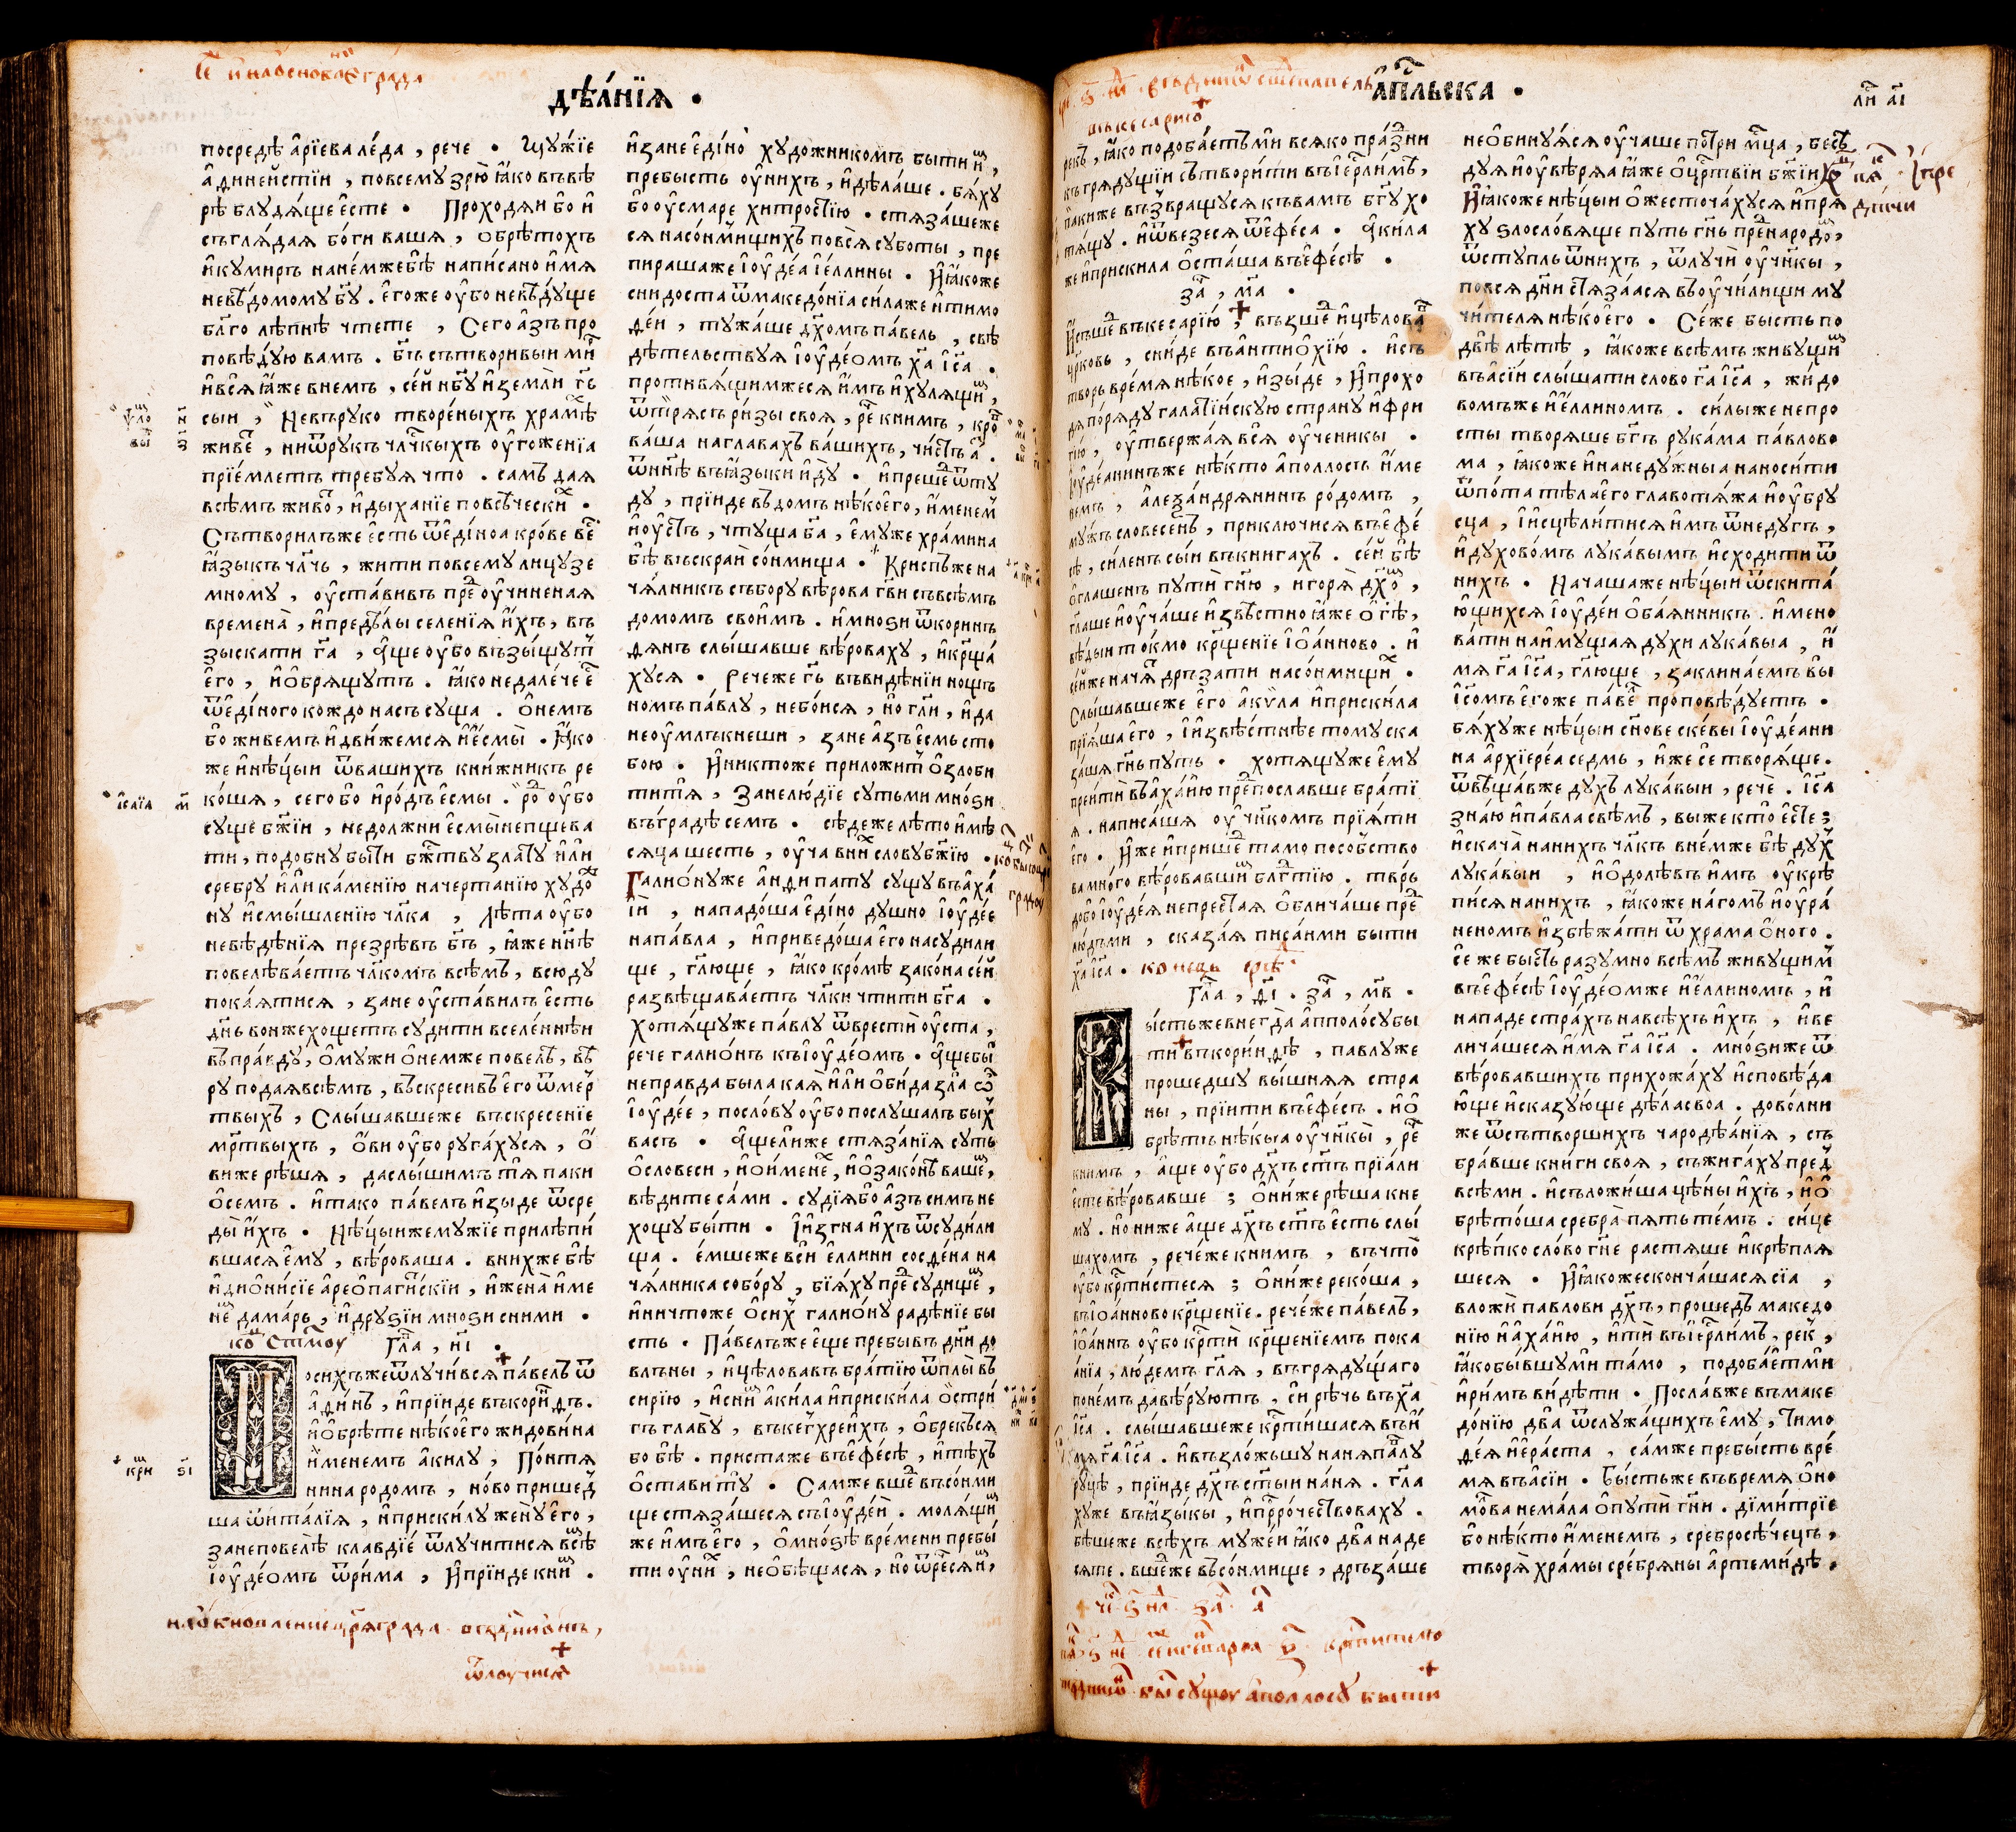 дѣа́нїꙗ •
посредѣ а҆рїева ле́да , рече • Мꙋжїе
а҆динейстїи , повсемꙋ зрю̀ ꙗ҆́ко въвѣ
рѣ блꙋдѧ́ще є҆сте • Проходѧи бо и҆
съглѧ́даѧ бо́ги вашѧ , обрѣтохъ
и҆кꙋмиръ нане́мжебѣ̀ напи́сано и҆́мѧ
невѣ́домомꙋ бг҃ꙋ . є҆гоже оу҆бо невѣ́дꙋще
бл҃го лѣпнѣ чтете , Сего а҆́зъ про
повѣ́дꙋю вамъ . бг҃ъ сътворивыи ми҃
и҆всѧ̀ ꙗ҆́же внемъ , се́й нб҃ꙋ и҆ земли̑ гь҃
сыи , Невърꙋко творе́ныхъ храмѣ
живе , ниѿрꙋкъ чл҃чкыхъ оу҆гоженїа
прїе́млетъ требꙋѧ что . самъ даѧ
всѣ́мъ живо , и҆дыханїе повсѣ́чески •
Сътворилъже є҆сть ѿє҆ди́ноа кро́ве ве
ꙗ҆зыкъ чл҃чь , жити повсемꙋ лицꙋ зе
мномꙋ , оу҆ста́вивъ пре оу҆чиненаѧ
времена̀ , и҆преде́лы селенїѧ и҆́хъ , въ
зыскати га҃ , а҆́ще оу҆бо възы́щꙋт
є҆го , и҆обрѧщꙋтъ . ꙗ҆́ко недале́че є
ѿє҆ди́ного кождо насъ сꙋща . О҆немъ
бо живемъ и҆дви́жемсѧ и҆є҆смы̀ • Ꙗ҆́ко
же и҆нѣ́цыи ѿвашихъ кни́жникъ ре
ко́шѧ , сего бо и҆ро́дъ є҆смы . ро оу҆бо
сꙋще бж҃їи , недолжни є҆смы̀ непщева
ти , подобнꙋ быти бж҃твꙋ златꙋ и҆ли̑
сребрꙋ и҆ли̑ ка́менїю начертанїю хꙋдо
нꙋ и҆смы́шленїю чл҃ка , лѣта оу҆бо
невѣ́дѣнїѧ презрѣвъ бг҃ъ , ꙗ҆́же нн҃ѣ
повелѣва́етъ чл҃комъ всѣ́мъ , всюдꙋ
пока́ѧтисѧ , зане оу҆ста́вилъ є҆сть
дн҃ь вонже хощетъ сꙋдити вселе́ннѣи
въпра́вдꙋ , О҆мꙋжи О҆немже повелѣ , вѣ
рꙋ подаѧ всѣ́мъ , въскресивъ є҆го ѿме́р
твыхъ , Слы́шавшеже въскресенїе
мр҃твыхъ , О҆́ви оу҆бо рꙋга́хꙋсѧ , О҆́
виже рѣ́шѧ , даслы́шимъ тѧ̀ паки
О҆семъ . и҆тако па́велъ и҆зыде ѿсре
ды̀ и҆́хъ • Нѣ́цыижемꙋжїе прилѣпи́
вшасѧ є҆мꙋ , вѣ́роваша . внихже бѣ̀
и҆дио҆ни́сїе а҆рео҆паги́скїи , и҆жена̀ и҆ме
не дама́рь , и҆дрꙋзїи мнози сними •
Гла , н҃і •
осихъжеѿлꙋчи́всѧ па́велъ ѿ
а҆ди́нъ , и҆прїиде въкори́нѳъ .
и҆обрѣ́те нѣ́коего жидови́на
и҆менемъ а҆ки́лꙋ , По́нтѧ
нина родомъ , но́во пришед̾
ша ѿи҆та́лїѧ , и҆приски́лꙋ женꙋ̀ є҆го ,
занеповелѣ̀ клавдїе ѿлꙋчитисѧ всѣ
їоу҆де́омъ ѿри́ма , и҆прїиде кни .
и҆зане є҆ди́но хꙋдо́жникомъ быти и ,
пребысть оу҆нихъ , и҆дѣла́ше . бѧ́хꙋ
бо оу҆сма́ре хитростїю • стѧза́шеже
сѧ насо́нмищихъ повсѧ̀ сꙋботы , пре
пирашаже їоу҆де́а їе́ллины • И҆ꙗ҆́коже
снидоста ѿмакедо́нїа си́лаже и҆тимо
ѳе́и , тꙋжа́ше дх҃омъ па́велъ , свѣ
дѣтельствꙋѧ їоу҆де́омъ ха҃ їс҃а •
противѧ́щимжесѧ и҆́мъ и҆хꙋлѧщи ,
ѿтрѧсъ ри́зы своѧ , ре книмъ , кро
ва́ша наглавахъ ва́шихъ , чи́стъ а .
ѿнн҃ѣ въꙗ҆зы́ки и҆дꙋ . и҆преше ѿтꙋ
дꙋ , прїиде въдомъ нѣ́коего , и҆менем
и҆оу҆стъ , чтꙋща ба҃ , є҆мꙋже хра́мина
бѣ̀ въскраи̑ со́нмища • Криспъже на
чѧ́лникъ съборꙋ вѣ́рова гв҃и съвсѣ́мъ
домомъ свои́мъ . и҆мнози ѿкоринѳ
дѧнъ слы́шавше вѣ́роваху , и҆кр҃ща́
хꙋсѧ • Речеже гь҃ въви́дѣнїи нощъ
номъ па́влꙋ , небо́исѧ , но̀ гл҃и , и҆да
неоу҆млъкнеши , зане а҆́зъ є҆смь сто
бою • И҆никтоже приложитъ о҆зло́би
титѧ̀ , Занелю́дїе сꙋтьми мно́зи
въгра́дѣ семъ . сѣ́деже лѣто и҆мѣ
сѧца шесть , оу҆ча вни сло́вꙋ бж҃їю •
Галио́нꙋже а҆нѳи́патꙋ сꙋщꙋ въа҆ха́
їи , нападо́ша є҆ди́но дꙋшно їоу҆де́е
напа́вла , и҆приведо́ша є҆го насꙋдили
ще , гл҃юще , ꙗ҆́ко кро́мѣ зако́на се́й
развѣщава́етъ чл҃ки чтити бг҃а •
хотѧ́щꙋже па́влꙋ ѿврести̑ оу҆ста ,
рече галио́нъ къїоу҆де́омъ • а҆́щебы
неправда была кая̀ и҆ли̑ о҆би́да зла ѡ
їоу҆де́е , посло́вꙋ оу҆бо послꙋшалъ бых
васъ • а҆́щели̑же стѧза́нїѧ сꙋть
о҆словеси , и҆ои҆мене , и҆озако́нѣ ваше ,
вѣ́дите са́ми . сꙋдїѧ̀бо а҆́зъ симъ не
хощꙋ бы́ти • И҆и҆згна и҆́хъ ѿсꙋдили
ща . є҆мшеже вси̑ є҆ллини сосѳе́на на
чѧ́лника собо́рꙋ , бїѧ́хꙋ пре сꙋдище ,
и҆ничтоже о҆сих галио́нꙋ радѣнїе бы
сть • Па́велъже є҆ще пребывъ дн҃и до
влъны , и҆цѣловавъ бра́тїю ѿплы̀ въ
сирїю , и҆сни а҆ки́ла и҆приски́ла остри́
гъ главꙋ̀ , въкегхреи́хъ , о҆брекъсѧ
бо бѣ̀ . присталже въє҆фе́сѣ , и҆тѣхъ
оставитꙋ • Самже вше въсо́нми
ще стѧза́шесѧ съїоу҆де́и̑ . молѧщи
же и҆́мъ є҆го , о҆мно́зѣ вре́мени пребы́
ти оу҆ни , необѣ́щасѧ , но̀ ѿре́сѧ и ,
а҆пс҃льска •
ли а҃і
рекъ , ꙗ҆́ко подоба́етъ ми̑ всѧко пра́зни
къ грѧдꙋщїи сътвори́ти въїе҆рл҃и́мъ ,
пакиже възвращꙋсѧ къвамъ бг҃ꙋ хо
тѧ́щꙋ . и҆ѿвезесѧ ѿе҆фе́са . а҆ки́ла
же и҆приски́ла о҆ста́ша въє҆фе́сѣ •
за , м҃а •
И҆съше въкесарїю , възше и҆цѣлова
цр҃ковь , сни́де въа҆нтиохїю . и҆съ
творь вре́мѧ нѣ́кое , и҆зы́де , и҆прохо
дѧ по́рѧдꙋ галати́искꙋю странꙋ и҆фри
гїю , оу҆твержа́ѧ всѧ̀ оу҆ченикы •
їоу҆деанинъже нѣ́кто а҆поллосъ и҆́ме
немъ , а҆леѯа́ндрѧнинъ ро́домъ ,
мꙋжъ словесе́нъ , приключисѧ въє҆фе́
сѣ , си́ленъ сы́и въкнигахъ . се́й бѣ̀
о҆глашенъ пꙋти̑ гн҃ю , и҆горѧ̀ дх҃о ,
гл҃аше и҆оу҆ча́ше и҆звѣ́стно ꙗ҆́же о҆ їс҃ѣ ,
вѣ́дыи то́кмо кр҃щенїе їо҆а́нново . и҆
се́йже нача́ дръзати насо́нмищи •
Слы́шавшеже є҆го а҆кѵ́ла и҆приски́ла
прїѧ́ша є҆го , и҆и҆звѣ́стнѣе томꙋ ска
за́шѧ гн҃ь пꙋть • хотѧщꙋже є҆мꙋ
преити̑ въа҆ха́ию препославше бра́тї
ѧ . написа́шѧ оу҆чн҃комъ прїѧ́ти
є҆го . И҆же и҆прише тамо посо́бство
ва мно́го вѣ́ровавши бл҃гтїю . тврь
добо їоу҆де́ѧ непреста́ѧ о҆блича́ше пре
лю́дьми , сказа́ѧ писа́нми быти
ха҃ їс҃а •
Гла , д҃і . за , м҃в •
ы́стьжевнегда̀ а҆пполо́сꙋ бы
ти въкори́нѳѣ , павлꙋже
прошедшꙋ вы́шнѧѧ стра
ны , прїити въє҆фе́съ . и҆о
брѣтъ нѣ́кыа оу҆чн҃кы̀ , ре
книмъ , а҆́ще оу҆бо дх҃ъ ст҃ъ прїѧ́ли
є҆сте вѣ́ровавше ; о҆ни́же рѣ́ша кне
мꙋ . но ниже а҆́ще дх҃ъ ст҃ъ є҆сть слы́
шахомъ , рече́же книмъ , въчто̀
оу҆бо кр҃ти́стесѧ ; о҆ни́же реко́ша ,
въїоа́нново кр҃щенїе . рече́же па́велъ ,
їо҆а́ннъ оу҆бо кр҃ти̑ кр҃щенїемъ пока
а́нїа , лю́демъ гл҃ѧ , въгрѧдꙋща́го
поне́мъ давѣ́рꙋютъ , си́ рѣчь въха҃
їс҃а . слы́шавшеже кр҃ти́шасѧ въи́
мѧ га҃ їс҃а . и҆възло́жьшꙋ нанѧ па́влꙋ
рꙋцѣ , прїиде дх҃ъ ст҃ыи на́нѧ . гл҃а
хꙋже въꙗ҆зы́кы , и҆прро́чествоваху .
бѣ́шеже всѣ́хъ мꙋже́и ꙗ҆́ко два̀ наде
сѧте . вше́же въсо́нмище , дръза́ше
необинꙋ́ѧсѧ оу҆чаше потри мц҃а , бесѣ
дꙋѧ и҆оу҆вѣ́рѧа ꙗ҆́же о҆цр҃твїи бж҃їи
И҆ꙗ҆́коже нѣ́цыи о҆жесточа́хꙋсѧ и҆прѧ
хꙋ злосло́вѧще пꙋть гн҃ь пре́народо ,
ѿстꙋпль ѿнихъ , ѿлꙋчѝ оу҆чн҃кы ,
повсѧ дн҃и стѧза́ѧсѧ въоу҆чи́лищи мꙋ
чи́телѧ нѣ́коего • Се́же бысть по
двѣ̀ лѣ́тѣ , ꙗ҆́коже всѣ́мъ живꙋщи
въа҆сїи слы́шати слово га҃ їс҃а , жидо
вомъже и҆е҆́ллиномъ . си́лыже непро
сты творѧше бг҃ъ рꙋка́ма па́влово
ма , ꙗ҆́коже и҆нанедꙋ́жныа наноси́ти
ѿпо́та тѣла є҆го главотѧ́жа и҆оу҆брꙋ
сца , и҆и҆сцѣли́тисѧ и҆́мъ ѿнедꙋгъ ,
и҆дꙋхово́мъ лꙋка́вымъ и҆сходити ѿ
нихъ • Начашаже нѣ́цыи ѿскита́
ющихсѧ їоу҆де́и о҆ба́ѧнникъ . и҆мено
ва́ти наи҆мꙋщаѧ дꙋхи лꙋка́выа , и҆́
мѧ га҃ їс҃а , гл҃юще , заклина́емъ вы
їс҃омъ є҆го́же па́ве пропо́вѣ́дꙋетъ •
бѧ́хꙋже нѣ́цыи сн҃ове скевы їоу҆де́ани
на а҆рхїере́а седмь , и҆́же се творѧ́ще .
ѿвѣща́вже дꙋхъ лꙋка́выи , речѐ . їс҃а
зна́ю и҆па́вла свѣмъ , выже кто є҆сте ;
и҆скача̀ нанихъ чл҃къ вне́мже бѣ̀ дꙋх
лꙋка́выи , и҆одолѣ́въ и҆́мъ оу҆крѣ
писѧ нанихъ , ꙗ҆́коже на́гомъ и҆оу҆ра́
неномъ и҆збѣжа́ти ѿ храма о҆ного .
се же бы́сть разꙋмно всѣ́мъ живꙋщим
въє҆фе́сѣ їоу҆де́омже и҆е҆́ллиномъ , и҆
нападе стра́хъ навсѣ́хъ и҆́хъ , и҆ве
лича́шесѧ и҆́мѧ га҃ їс҃а . мно́зиже ѿ
вѣ́ровавшихъ прихожа́хꙋ и҆сповѣ́да
юще и҆сказꙋ́юще дѣ́ла своа . дово́лни
же ѿсътворшихъ чародѣ́анїѧ , съ
бра́вше кни́ги своѧ , съжига́хꙋ пред
всѣ́ми . и҆съложи́ша цѣ́ны и҆́хъ , и҆о
брѣто́ша сребра̀ пѧть те́мъ . си́це
крѣ́пко сло́во гн҃е растѧше и҆крѣ́плѧ
шесѧ • И҆ꙗ҆́кожесконча́шасѧ сїа ,
вложи̑ павлови дх҃ъ , проше́дъ македо
нїю и҆а҆ха́ию , и҆ти̑ въїе҆рл҃и́мъ , рек ,
ꙗ҆́кобы́вшꙋми та́мо , подоба́етми
и҆ри́мъ ви́дѣти • Посла́вже въмаке
до́нїю два̀ ѿслꙋжа́щихъ є҆мꙋ , тимо
ѳе́ѧ и҆е҆ра́ста , са́мже пребы́сть вре́
мѧ въа҆сїи • Бы́стьже въвремѧ о҆но
мо́лва нема́ла о҆пꙋти̑ гн҃и . димитрїе
бо нѣ́кто и҆́менемъ , среброcѣ́чецъ ,
творѧ̀ хра́мы сре́брѧны а҆ртеми́дѣ .